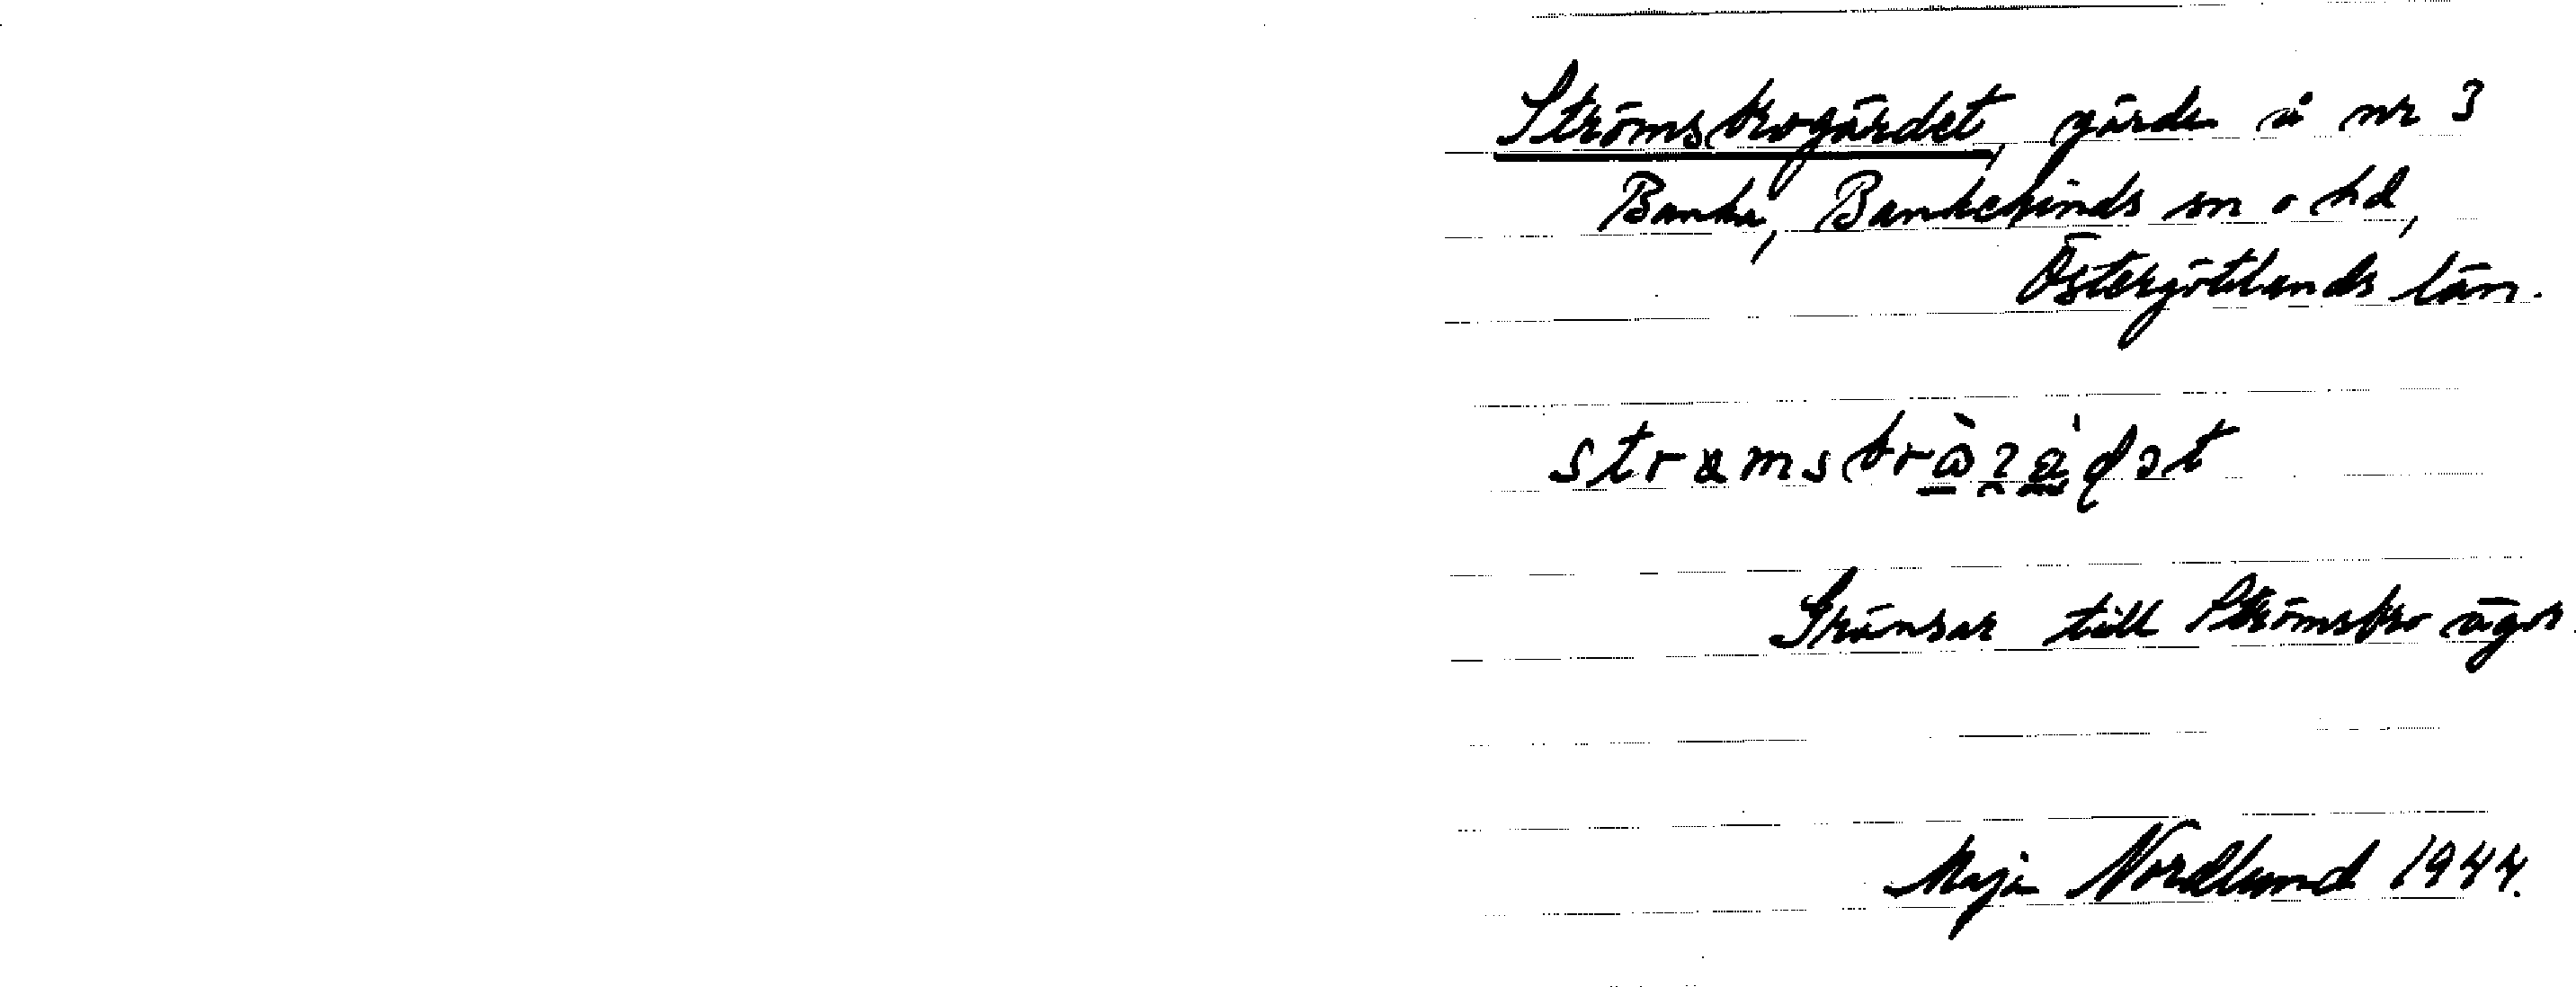 Strömsbrogärdet, gärde å nr 3
Banka, Bankekinds sn o hd,
Östergötlands län.
Gränsar till Strömsbro ägor.
Maja Nordlund 1944.